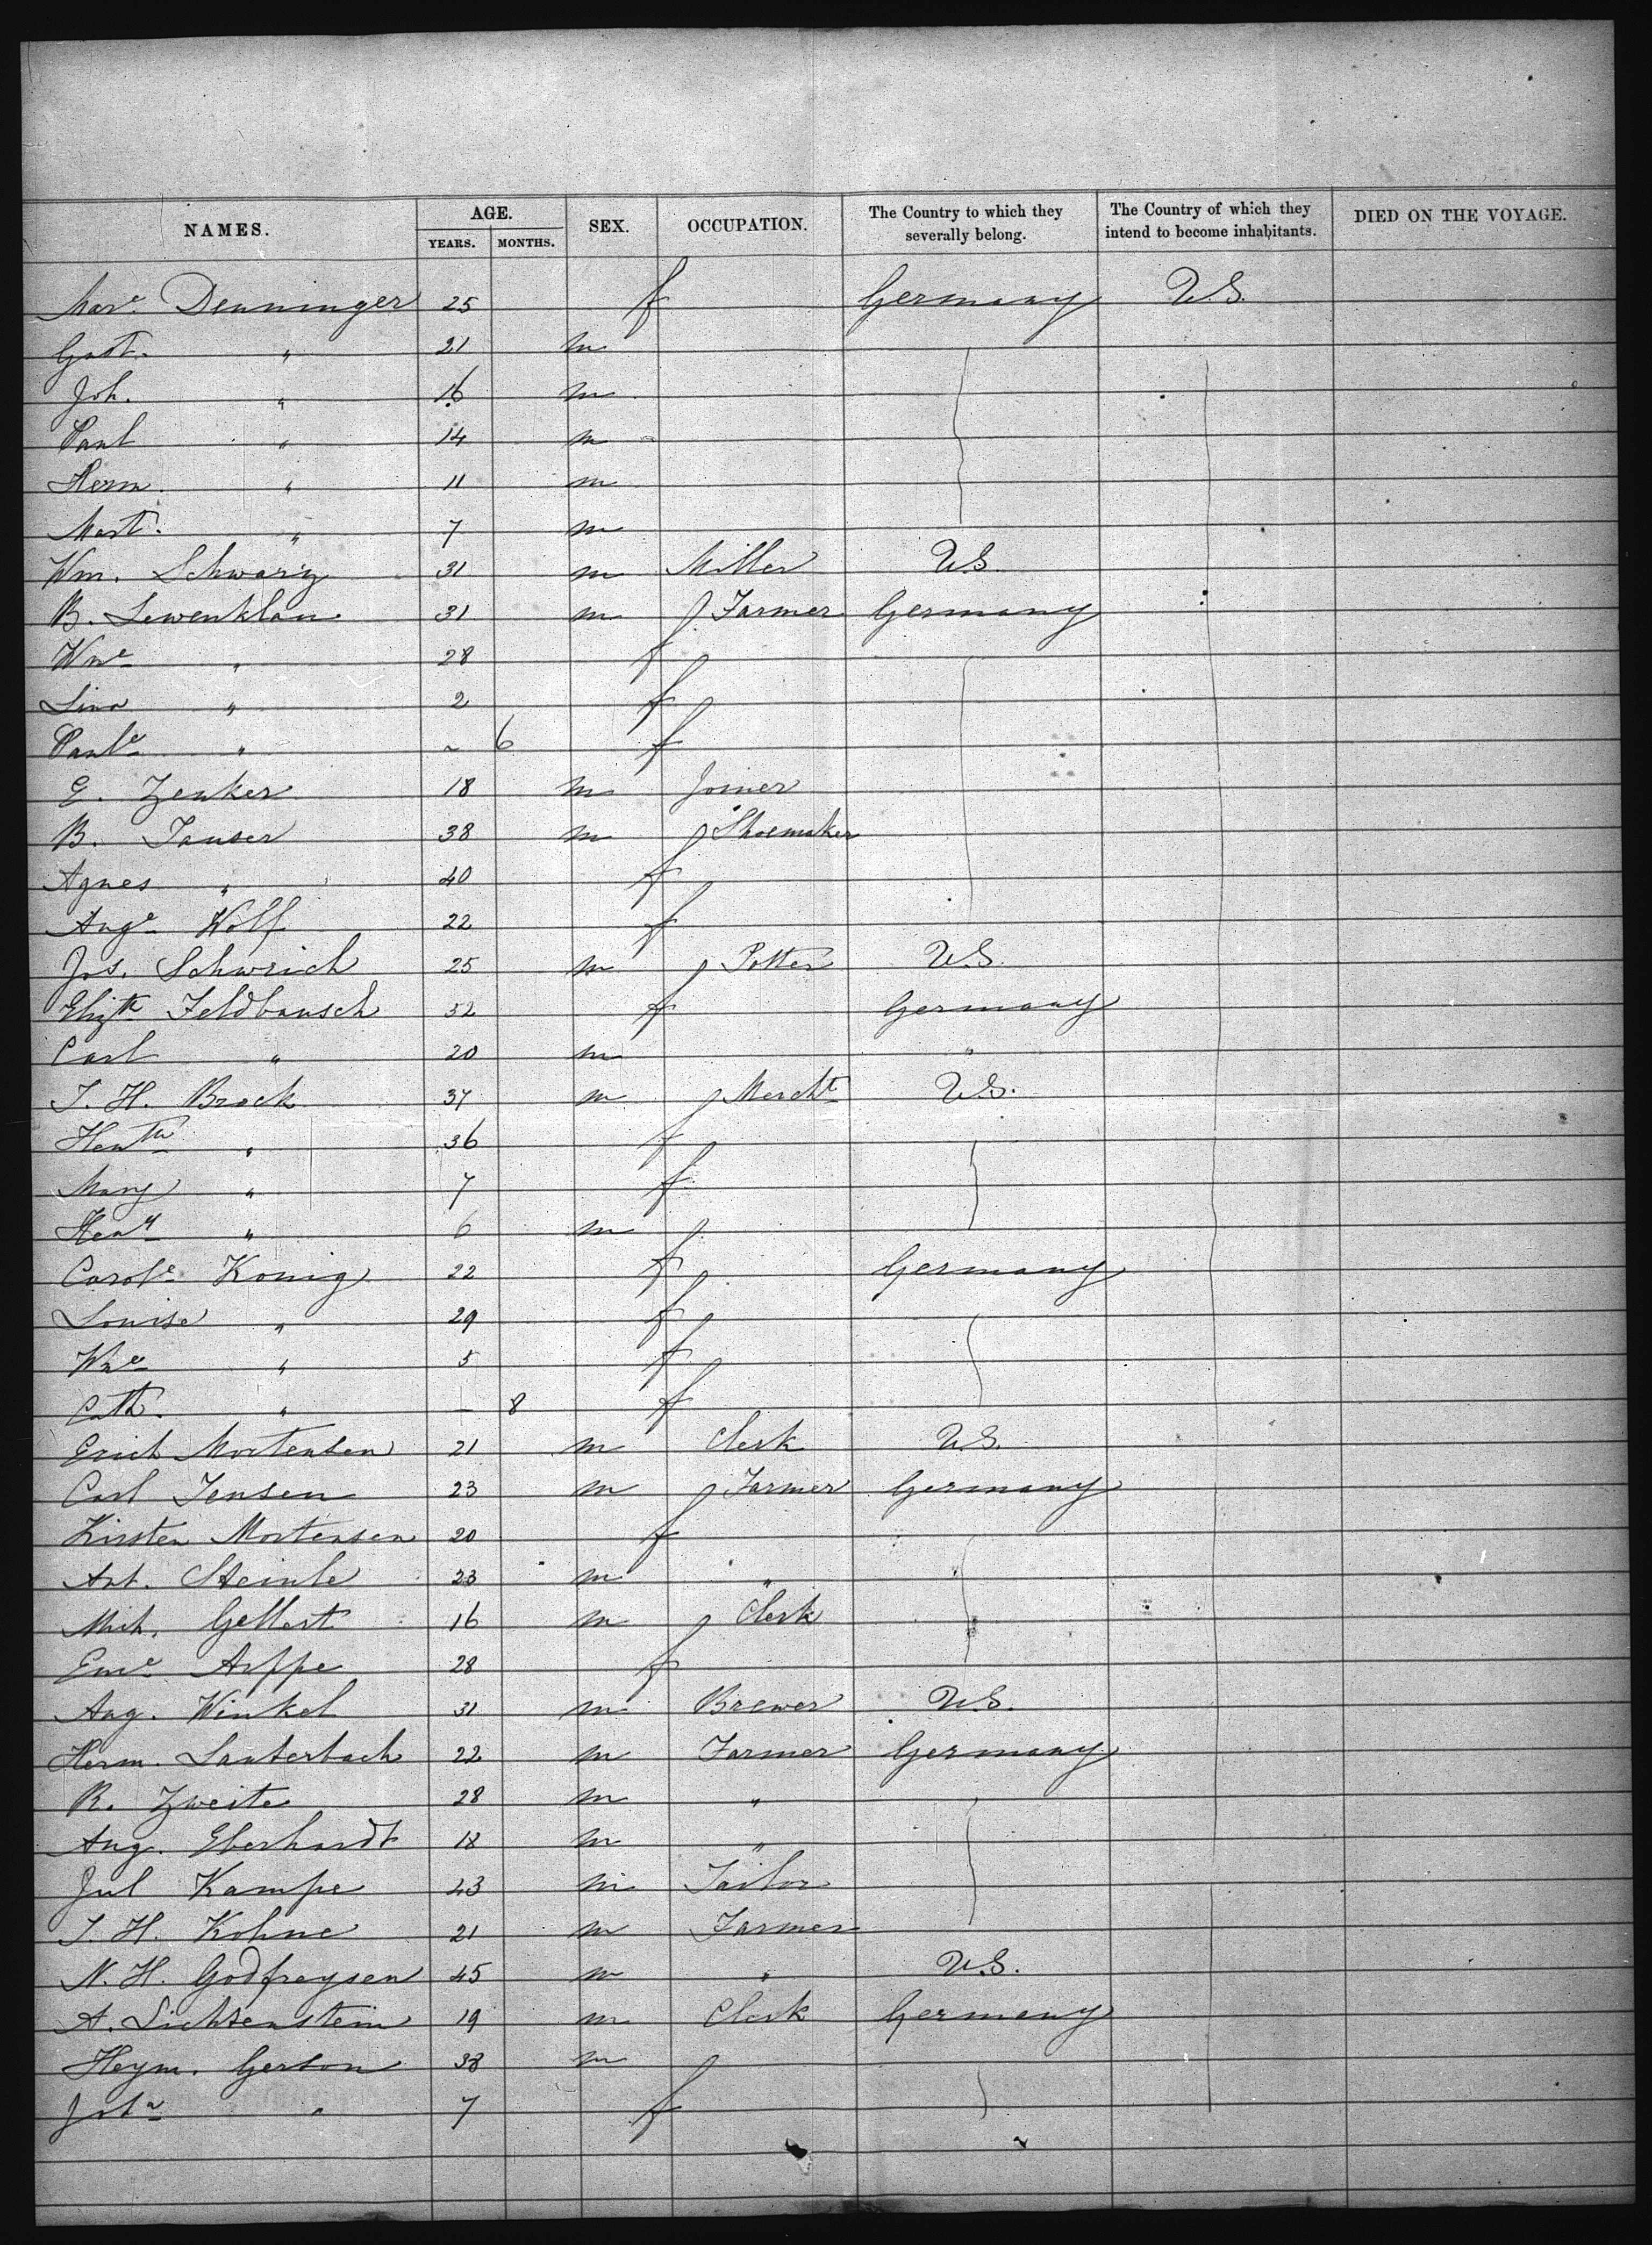 NAMES. AGE. SEX. OCCUPATION. The Country to which they severally belong. The Country of which they intend to become inhabitants. DIED ON THE VOYAGE.
YEARS. MONTHS.
Mare Denninger 25 f Germany U.S.
Gust. " 21 m
Joh. " 16 m
Paul " 14 m
Herm. " 11 m
Mart. " 7 m
Wm. Schwarz 31 m Miller U.S.
B. Lewenklau 31 m Farmer Germany
Wme " 28 f
Lina " 2 f
Paule " ~ 6 f
E. Zenker 18 m Joiner
B. Tauser 38 m Shoemaker
Agnes " 40 f
Auge Wolf 22 f
Jos. Schwrich 25 m Potter U.S.
Elizth Feldbausch 52 f Germany
Carl " 20 m "
J. H. Brock 37 m Mercht U.S.
Hentta " 36 f
Mary " 7 f
Heny " 6 m
Carole Konig 22 f Germany
Louise " 29 f
Wme " 5 f
Cath. " – 8 f
Erich Mortensen 21 m Clerk U.S.
Carl Jensen 23 m Farmer Germany
Kirsten Mortensen 20 f
Ant. Steinle 23 m "
Mich. Gellert 16 m Clerk
Eme Arppe 28 f
Aug. Winkel 31 m Brewer U.S.
Herm. Lauterbach 22 m Farmer Germany
R. Zweite 28 m "
Aug. Eberhardt 18 m "
Jul Kampe 43 m Tailor
J. H. Kohne 21 m Farmer
N. H. Godfreysen 45 m " U.S.
A. Lichtenstein 19 m Clerk Germany
Heym. Gerson 38 m
" 7 f